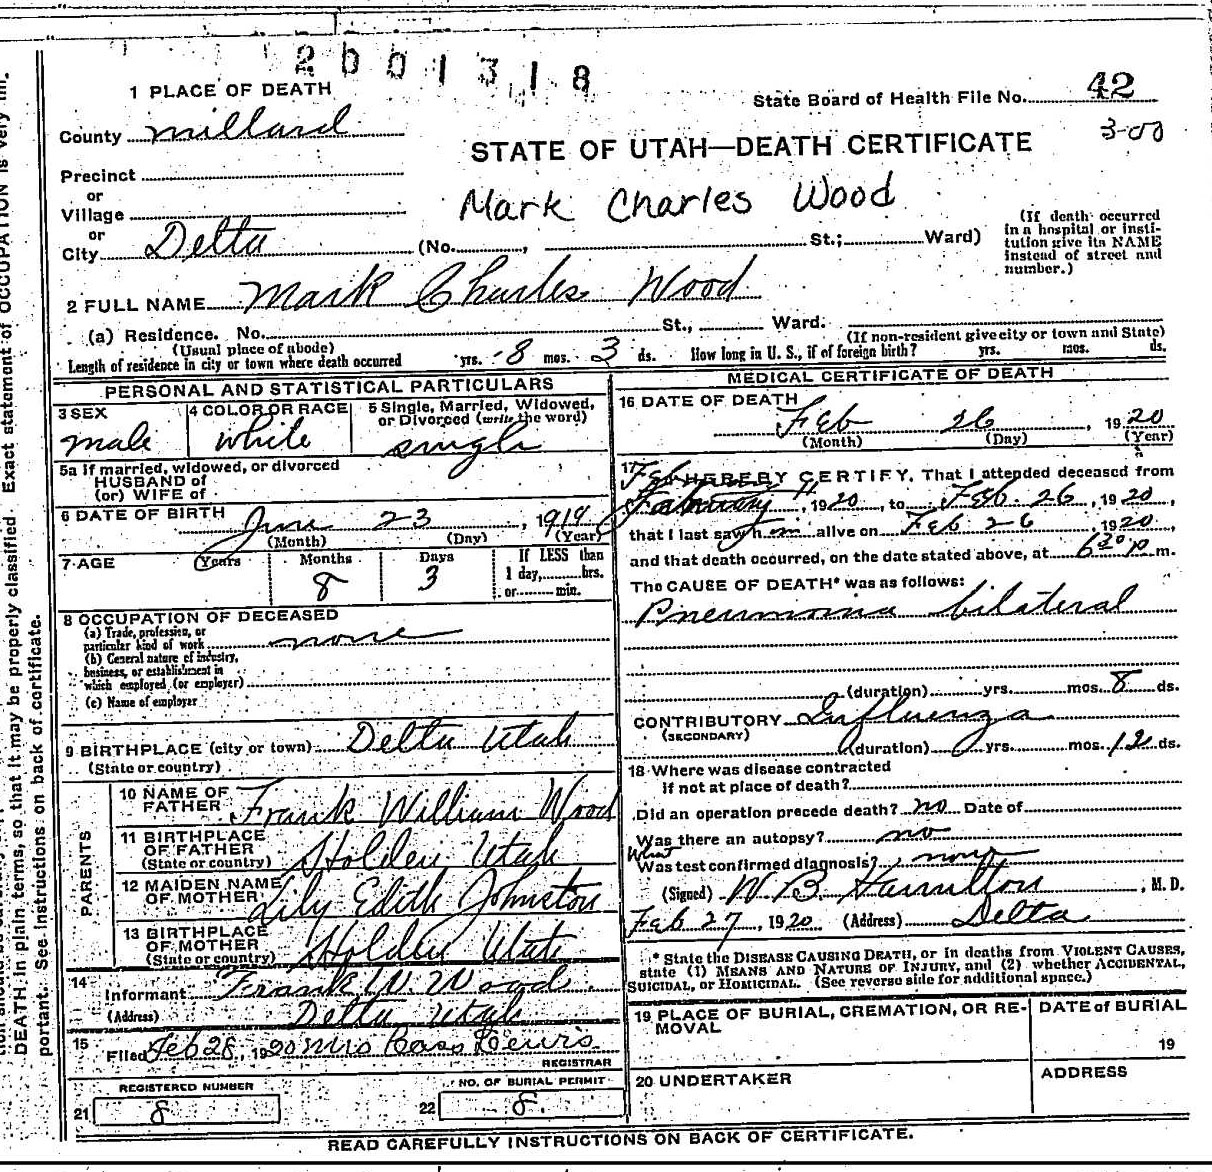 2001318
1 PLACE OF DEATH
State Board of Health File No. 42
County Millard
3-00
STATE OF UTAH—DEATH CERTIFICATE
Precinct
or
Village
Mark Charles Wood
or
City Delta (No. , St.; Ward)
(If death occurred in a hospital or insti-
tution give its NAME instead of street and number.)
2 FULL NAME Mark Charles Wood
(a) Residence. No. St., Ward.
(Usual place of abode) (If non-resident give city or town and State)
Length of residence in city or town where death occurred yrs. 8 mos. 3 ds. How long in U. S., if of foreign birth? yrs. mos. ds.
PERSONAL AND STATISTICAL PARTICULARS
3 SEX male
4 COLOR OR RACE white
5 Single, Married, Widowed, or Divorced (write the word) single
5a If married, widowed, or divorced
HUSBAND of
(or) WIFE of
6 DATE OF BIRTH June 23, 1919
(Month) (Day) (Year)
7 AGE Years Months 8 Days 3 If LESS than 1 day, hrs. or min.
8 OCCUPATION OF DECEASED
(a) Trade, profession, or particular kind of work none
(b) General nature of industry, business, or establishment in which employed (or employer)
(c) Name of employer
9 BIRTHPLACE (city or town) Delta Utah
(State or country)
PARENTS
10 NAME OF FATHER Frank William Wood
11 BIRTHPLACE OF FATHER (State or country) Holden Utah
12 MAIDEN NAME OF MOTHER Lily Edith Johnston
13 BIRTHPLACE OF MOTHER (State or country) Holden Utah
14 Informant Frank W. Wood
(Address) Delta Utah
15 Filed Feb 28, 1920 Mrs Cass Lewis
REGISTRAR
REGISTERED NUMBER
21 8
NO. OF BURIAL PERMIT
22 8
MEDICAL CERTIFICATE OF DEATH
16 DATE OF DEATH
Feb 26, 1920
(Month) (Day) (Year)
17 I HEREBY CERTIFY, That I attended deceased from
Feb 11, 1920, to Feb. 26, 1920,
that I last saw him alive on Feb 26, 1920,
and that death occurred, on the date stated above, at 6 30 p m.
The CAUSE OF DEATH* was as follows:
Pneumonia bilateral
(duration) yrs. mos. 8 ds.
CONTRIBUTORY Influenza
(SECONDARY)
(duration) yrs. mos. 12 ds.
18 Where was disease contracted
if not at place of death?
Did an operation precede death? no Date of
Was there an autopsy? no
What
Was test confirmed diagnosis? none
(Signed) W B Hamilton, M. D.
Feb 27, 1920 (Address) Delta
* State the DISEASE CAUSING DEATH, or in deaths from VIOLENT CAUSES,
state (1) MEANS AND NATURE OF INJURY, and (2) whether ACCIDENTAL,
SUICIDAL, or HOMICIDAL. (See reverse side for additional space.)
19 PLACE OF BURIAL, CREMATION, OR RE-
MOVAL
DATE of BURIAL
19
20 UNDERTAKER
ADDRESS
READ CAREFULLY INSTRUCTIONS ON BACK OF CERTIFICATE.
DEATH in plain terms, so that it may be properly classified. Exact statement of OCCUPATION is very im-
portant. See instructions on back of certificate.